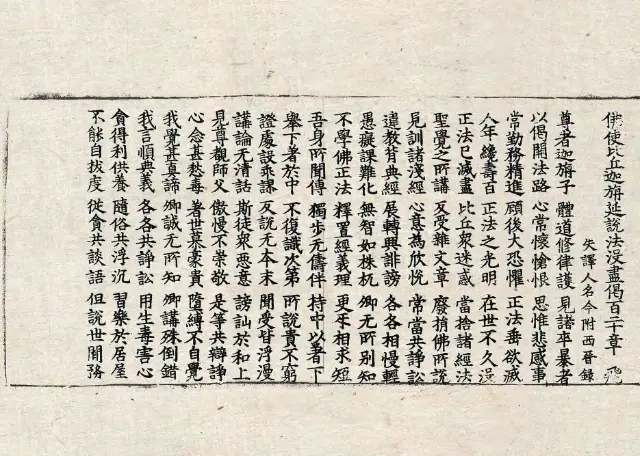 佛使比丘迦旃延說法沒盡偈百二十章 飛
失譯人名今附西晉録
尊者迦旃子 體道修律護 見諸卒暴者
以偈開法路 心常懷愴恨 思惟悲感事
常勤務精進 顧後大恐懼 正法垂欲滅
人年纔壽百 正法之光明 在世不久没
正法已滅盡 比丘衆迷惑 當捨諸經法
聖覺之所講 反受雜文章 廢捐佛所說
見訓諸淺經 心意為欣悅 常當共諍訟
違教背典經 展轉興誹謗 各各相慢輕
愚癡課難化 無智如株杌 卿无所別知
不學佛正法 釋置經義理 更互相求短
吾身所聞傳 獨步无儔伴 持中以著下
舉下著於中 不復識次第 所說貴不窮
證處設乖課 反說无本末 聞受皆浮漫
講論无清話 斯徒衆惡意 謗訕於和上
見尊觀師父 傲慢不崇敬 是等共辯諍
心念甚愁毒 著世慕豪貴 墮縛不自覺
我覺甚真諦 卿誠无所知 卿講殊倒錯
我言順典義 各各共諍訟 用生毒害心
貪得利供養 隨俗共浮沉 習樂於居屋
不能自拔度 從貪共談語 但說世間務